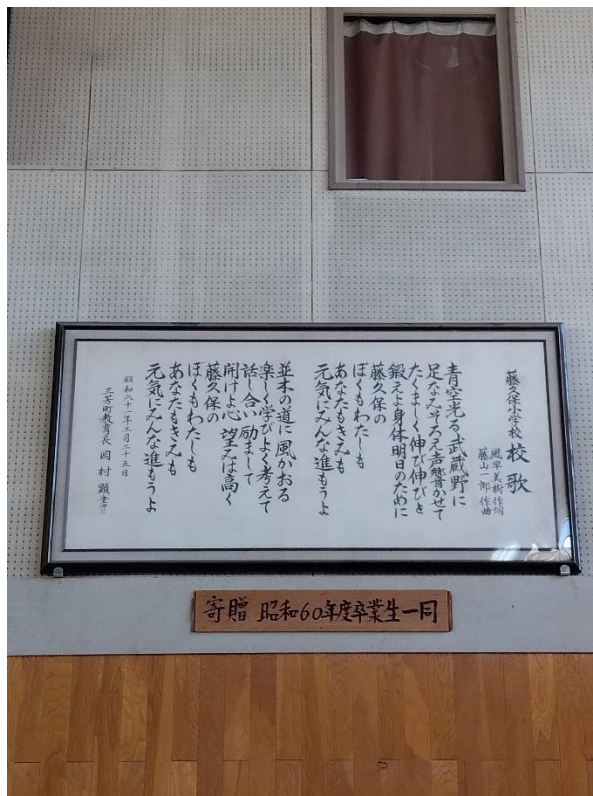 藤久保小学校 校歌
風早美樹 作詞
藤山一郎 作曲
青空光る武蔵野に
足なみそろえ声響かせて
たくましく伸び伸びと
鍛えよ身体明日のために
藤久保の
ぼくもわたしも
あなたもきみも
元気にみんな進もうよ
並木の道に 風かおる
楽しく学びよく考えて
話し合い励まして
開けよ心 望みは高く
藤久保の
ぼくもわたしも
あなたもきみも
元気にみんな進もうよ
昭和六十一年三月二十五日
三芳町教育長 岡村 顕
寄贈 昭和60年度卒業生一同